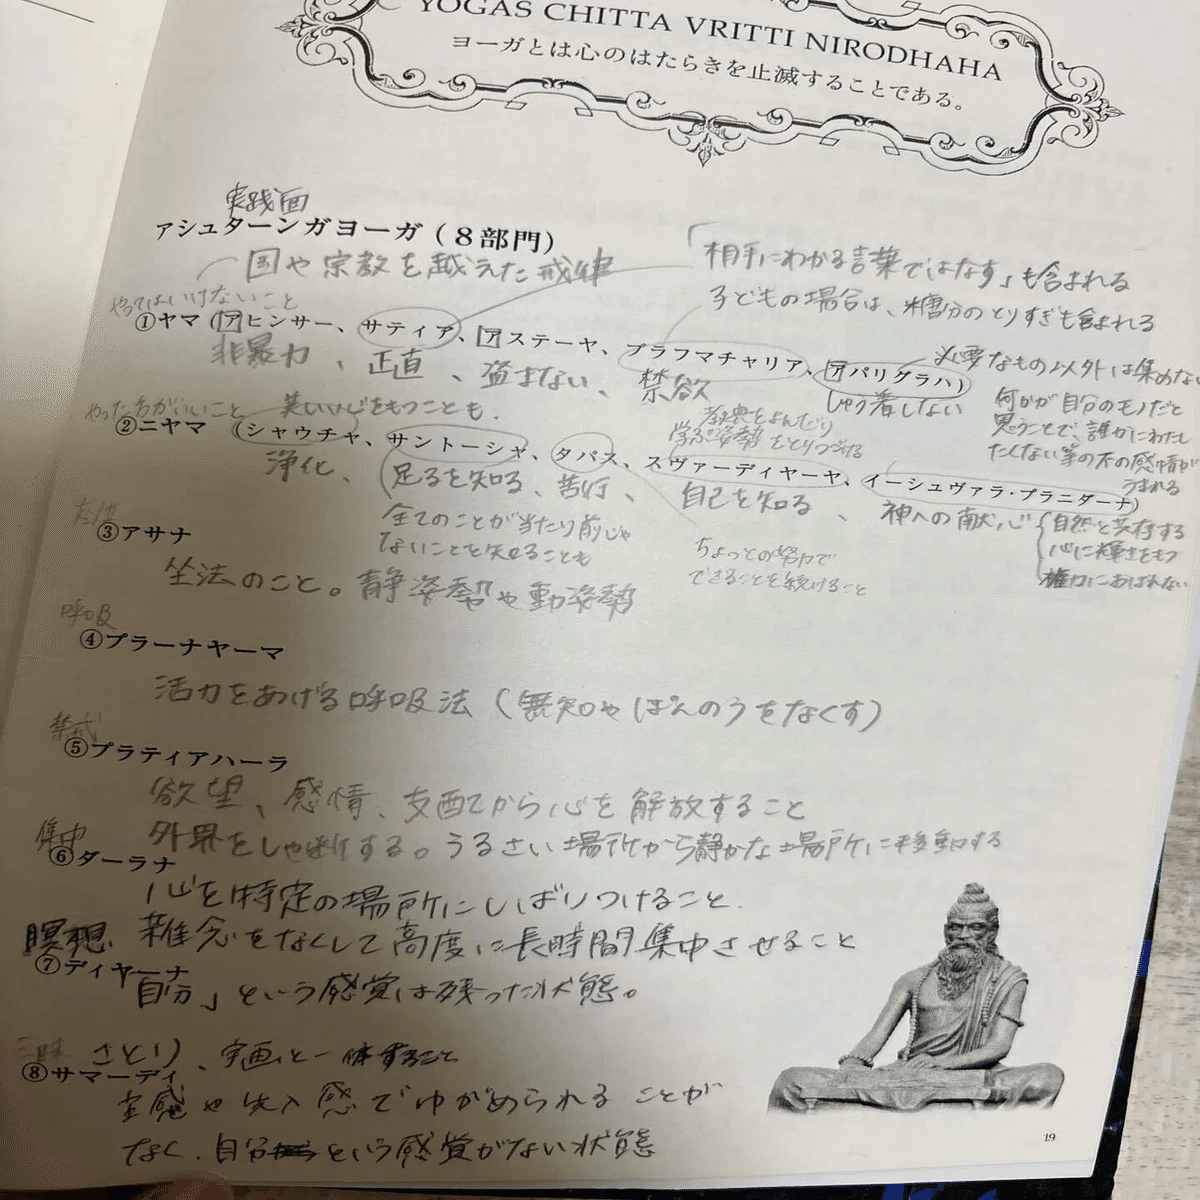 YOGAS CHITTA VRITTI NIRODHAHA
ヨーガとは心のはたらきを止滅することである。
実践面
アシュターンガヨーガ(8部門)
国や宗教を越えた戒律
「相手にわかる言葉ではなす」も含まれる
子どもの場合は、糖分のとりすぎも含まれる
やってはいけないこと
①ヤマ(アヒンサー、サティア、アステーヤ、ブラフマチャリア、アパリグラハ)
非暴力、正直、盗まない、禁欲
しゅう着しない
必要なもの以外は集めない
何かが自分のモノだと
思うことで、誰かにわたし
たくない等の不の感情が
うまれる
やった方がいいこと
美しい心をもつことも.
教典をよんだり
学ぶ姿勢をとりつづける
②ニヤマ(シャウチャ、サントーシャ、タパス、スヴァーディヤーヤ、イーシュヴァラ・プラニダーナ)
浄化、足るを知る、苦行、自己を知る、神への献心
全てのことが当たり前じゃ
ないことを知ることも
ちょっとの努力で
できることを続けること
自然と共存する
心に輝きをもつ
権力にあばれない
③アサナ
坐法のこと。静姿勢や動姿勢
呼吸
④プラーナヤーマ
活力をあげる呼吸法(無知やぼんのうをなくす)
⑤プラティアハーラ
欲望、感情、支配から心を解放すること
外界をしゃ断する。うるさい場所から静かな場所に移動する
集中
⑥ダーラナ
心を特定の場所にしばりつけること.
瞑想
雑念をなくして高度に長時間集中させること
⑦ディヤーナ
自分」という感覚は残った状態。
三昧 さとり、と一体すること
⑧サマーディ
や先入感でゆがめられることが
なく、自分という感覚がない状態
19